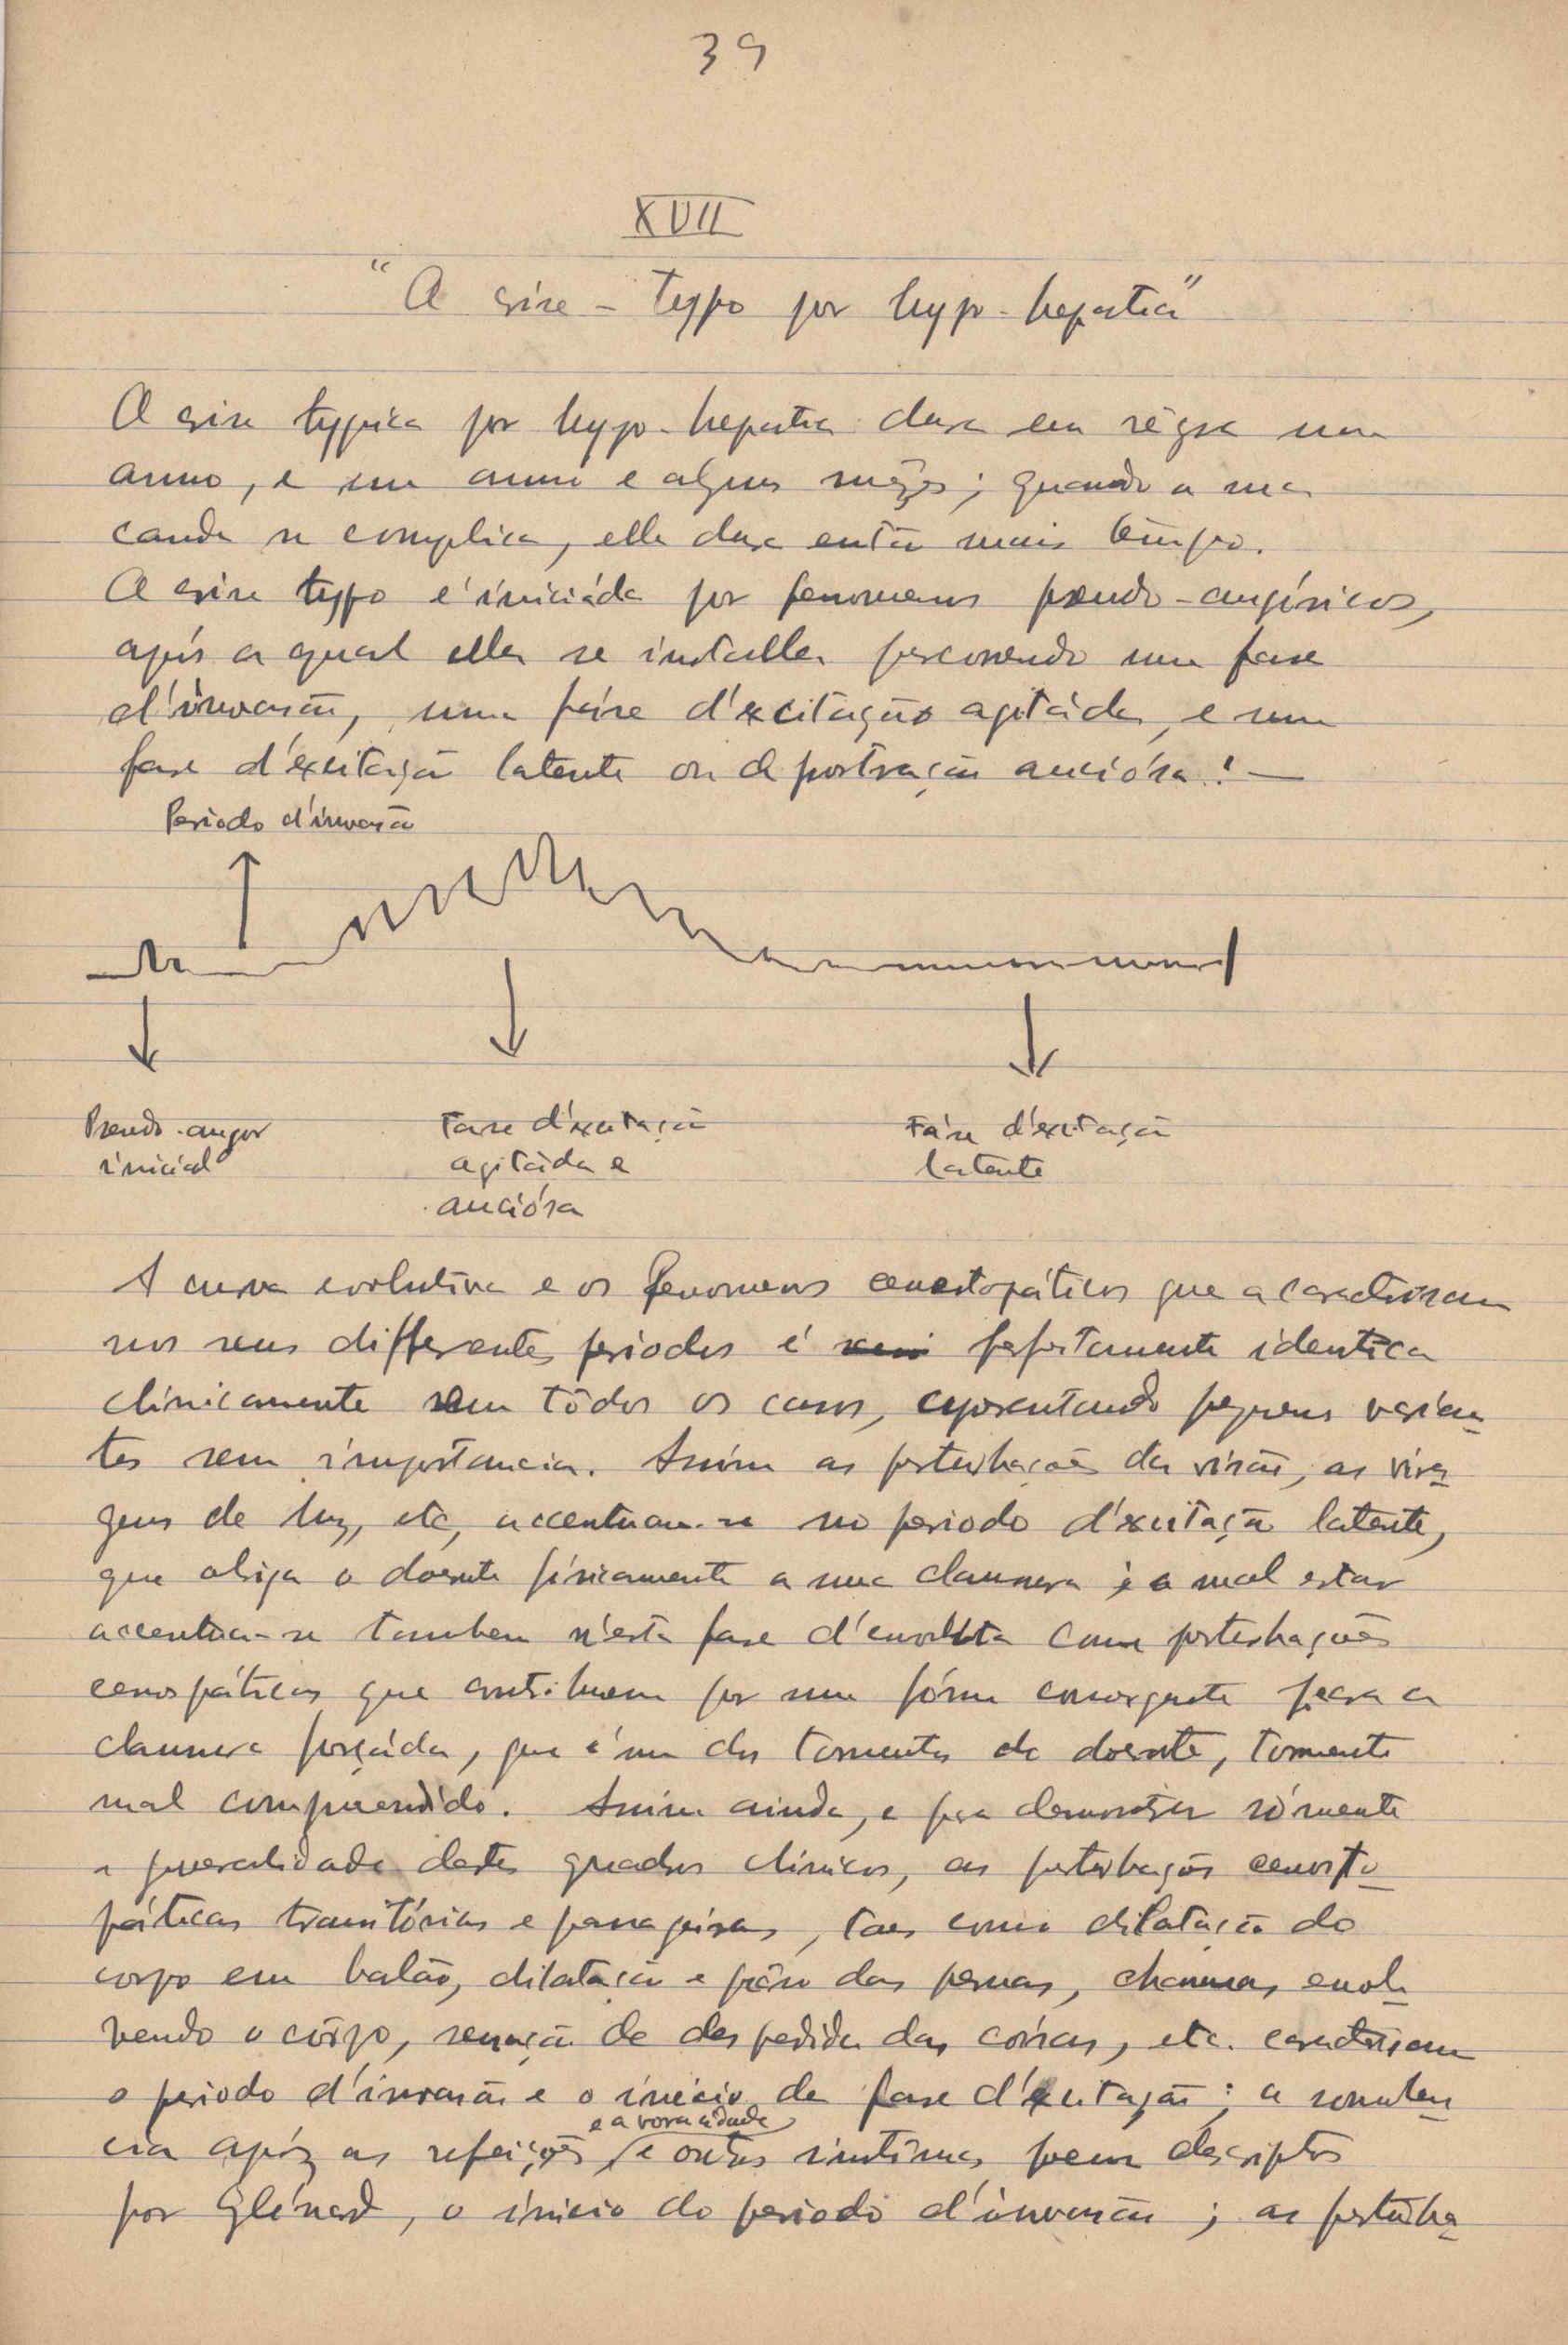 39
XVII
"A crise - typo por hypo-hepatia"
A crise typica por hypo-hepatia dura em régra um
anno, e um anno e alguns mêzes; quando a
se complica, ella dura então mais tempo.
A crise typo é iniciáda por fenomenos pseudo-angínicos,
após a qual ella se installa percorrendo uma fase
d'invasão, uma fáse d'excitação agitáda, e uma
fase d'excitação latente ou de postração anciósa: —
Periodo d'invasão
Pseudo-angor
inicial
Fase d'excitação
agitáda e
anciósa
Fáse d'excitação
latente
A curva evolutiva e os fenomenos cenestopáticos que a caracterisam
nos seus differentes periodos é perfeitamente identica
clinicamente em tôdos os casos, apresentando pequenas varian-
tes sem importancia. Assim as perturbações da visão, as vira-
gens de luz, etc, accentuam-se no periodo d'excitação latente,
que obriga o doente fisicamente a uma clausura; o mal estar
accentua-se tambem n'esta fase d'envolta com perturbações
cenospáticas que contribuem por uma fórma convergente para a
clausura forçáda, que é um dos tormentos do doente, tormento
mal compreendido. Assim ainda, e para demonstrar sómente
a destes quadros clinicos, as perturbações cenesto-
páticas transitórias e passageiras, taes como dilatação do
corpo em balão, dilatação e pêso das pernas, chammas envol-
vendo o côrpo, sensação de despedida das coisas, etc. caracterisam
o periodo d'invasão e o inicio da fase d'excitação; a sonolen-
cia após as refeições e a voracidade e outros sintomas bem descriptos
por Glénard, o inicio do periodo d'invasão; as perturba-